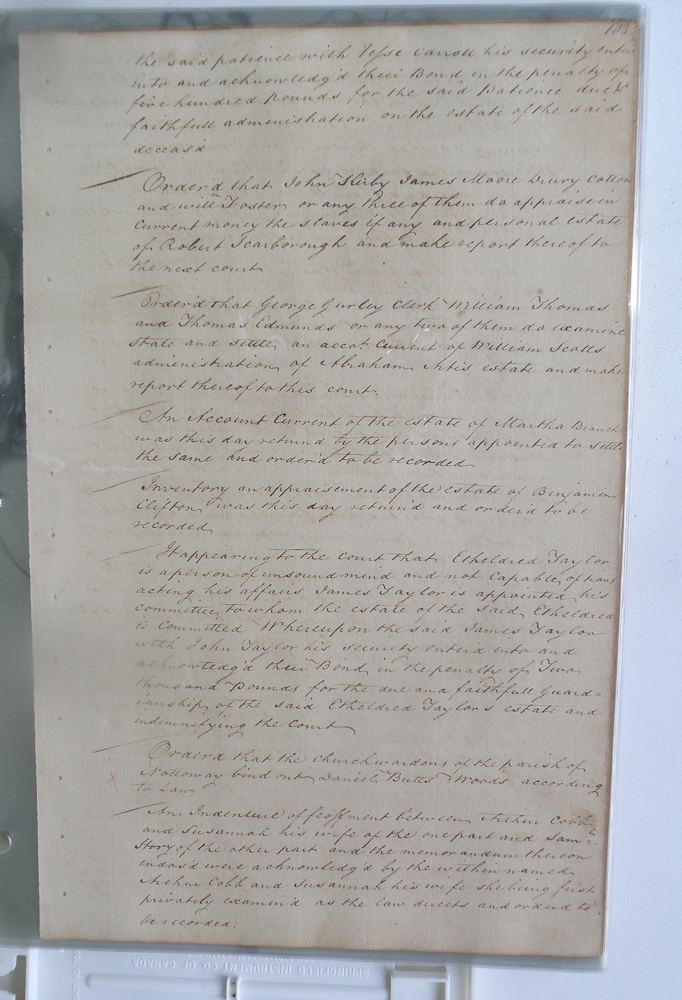 103
the said patience with Jesse Carroll his security enter
into and acknowledg'd their Bond in the penalty of
five hundred Pounds for the said Patience due &
faithfull administration on the estate of the said
deceas'd
Order'd that John Kirby James Moore Drury Cotton
and Will.m Foster or any three of them do appraise in
Current money the slaves if any and personal estate
of Robert Scarborough and make report thereof to
the next court
Order'd that George Gurley Clerk William Thomas
and Thomas Edmunds or any two of them do examine
state and settle an accot. Current of William Scotts
administration of Abraham Artis estate and make
report thereof to this court
An Account Current of the estate of Martha Branch
was this day return'd by the persons appointed to settle
the same and order'd to be recorded
Inventory an appraisement of the estate of Benjamin
Clifton was this day return'd and order'd to be
recorded
It appearing to the Court that Etheldred Taylor
is a person of unsound mind and not Capable of trans
acting his affairs James Taylor is appointed his
committee to whom the estate of the said Etheldred
is Committed Whereupon the said James Taylor
with John Taylor his security enter'd into and
acknowledg'd their Bond in the penalty of Two
thousand Pounds for the due and faithfull Guard=
ianship of the said Etheldred Taylors estate and
indemnifying the Court
Order'd that the Churchwardens of the parish of
Nottoway bind out Daniel Butts Woods according
to Law
An Indenture of feoffment between Arthur Cobb
and Susannah his wife of the one part and Saml.
Story of the other part and the memorandum thereon
endos'd were acknowledg'd by the within named
Arthur Cobb and Susannah his wife she being first
privately examin'd as the law directs and order'd to
be recorded.
SPRINGFIELD INSTRUMENT CO OF CANADA